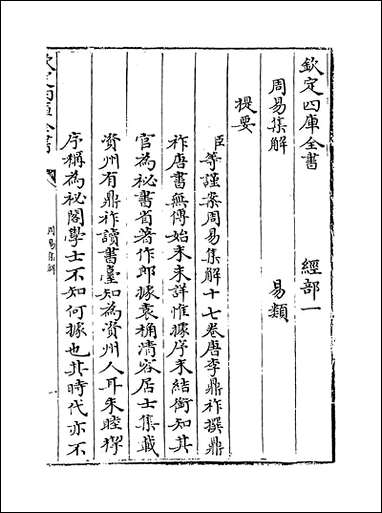 欽定四庫全書 經部一
周易集解 易類
提要
臣等謹案周易集解十七卷唐李鼎祚撰鼎
祚唐書無傳始末未詳惟據序末結銜知其
官為秘書省著作郎據袁桷清容居士集載
資州有鼎祚讀書臺知為資州人耳朱睦㮮
序稱為秘閣學士不知何據也其時代亦不
周易集解